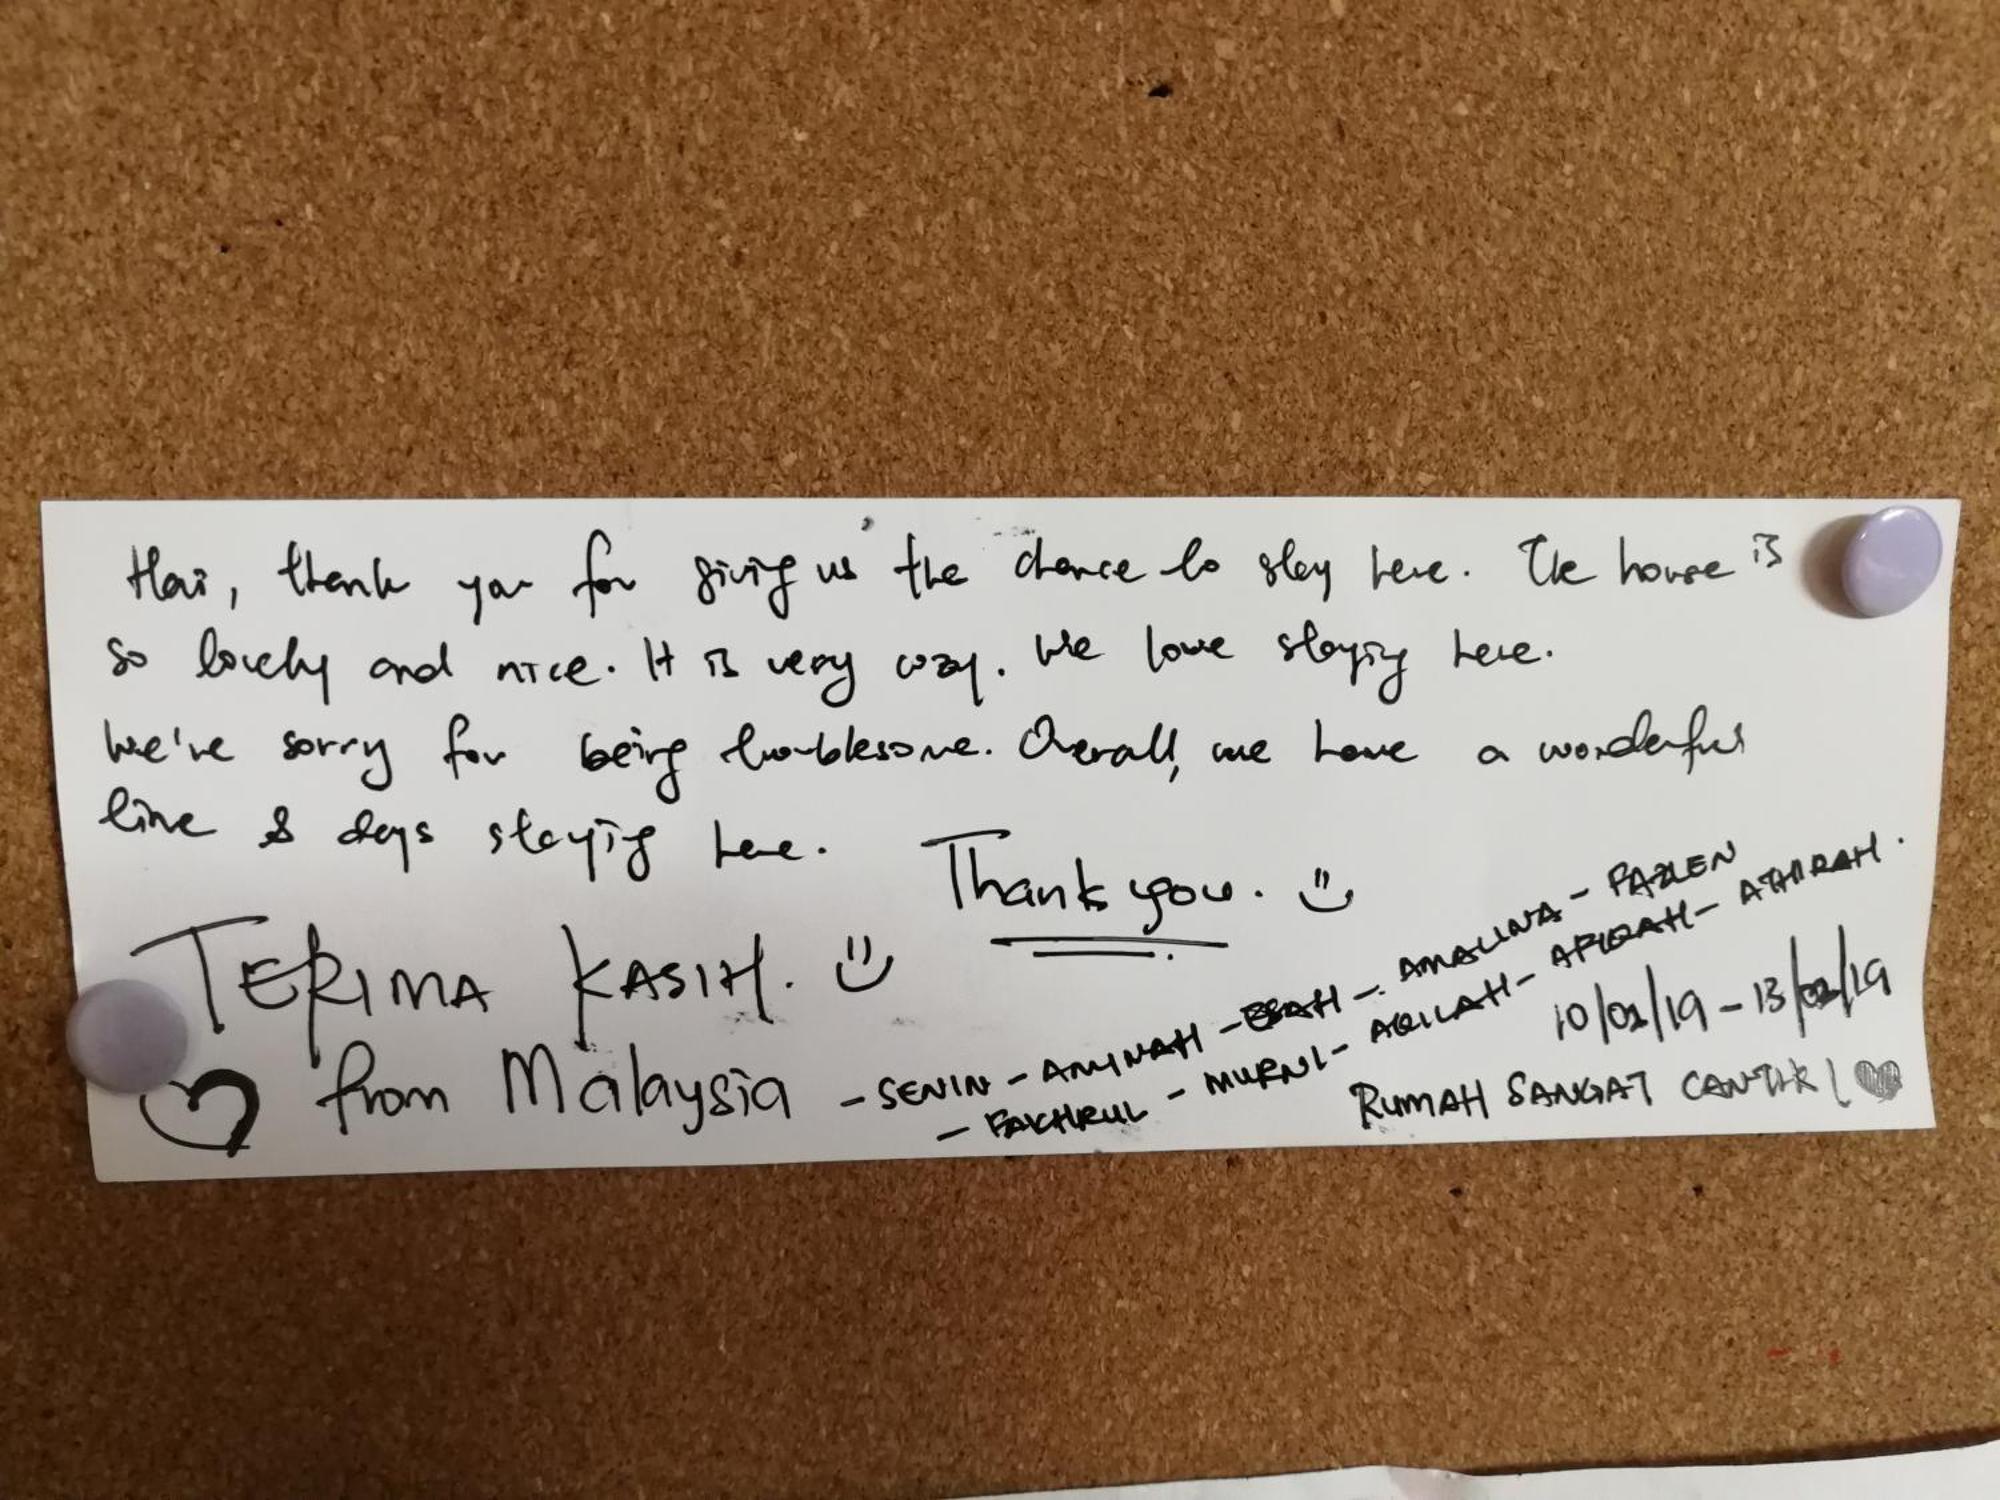 Hai, thank you for giving us the chance to stay here. The house is
so lovely and nice. It is very cozy. We love staying here.
We're sorry for being troublesome. Overall, we have a wonderful
time & days staying here.
Thank you. :)
TERIMA KASIH. :)
from Malaysia
- SENIN - AMINAH - ESAH - AMALINA - FAZLEN
- FAKHRUL - MURNI - AQILAH - AFIQAH - ATHIRAH.
10/02/19 - 13/02/19
RUMAH SANGAT CANTIK!